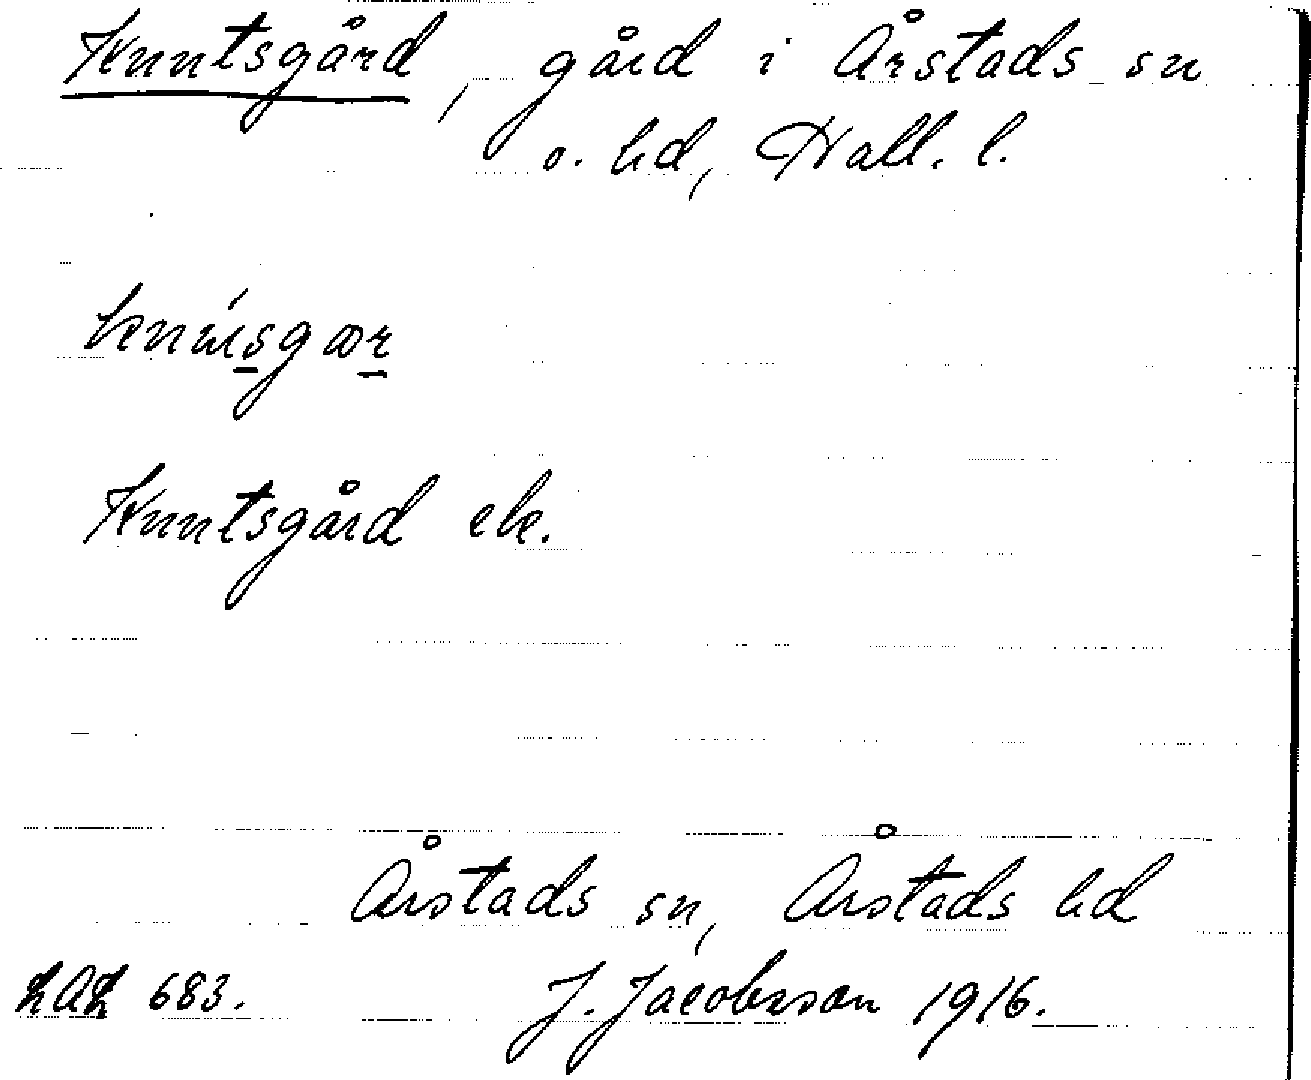 Knutsgård, gård i Årstads sn
o. hd, Hall. l.
Knutsgård ek.
Årstads sn, Årstads hd
LAL 683. J. Jacobsson 1916.